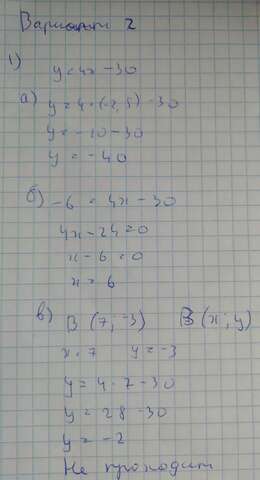 Вариант 2
1) y=4x-30
а) y=4·(-2,5)-30
y=-10-30
y=-40
б) -6=4x-30
4x-24=0
x-6=0
x=6
в) B(7;-3) B(x;y)
x=7 y=-3
y=4·7-30
y=28-30
y=-2
Не проходит